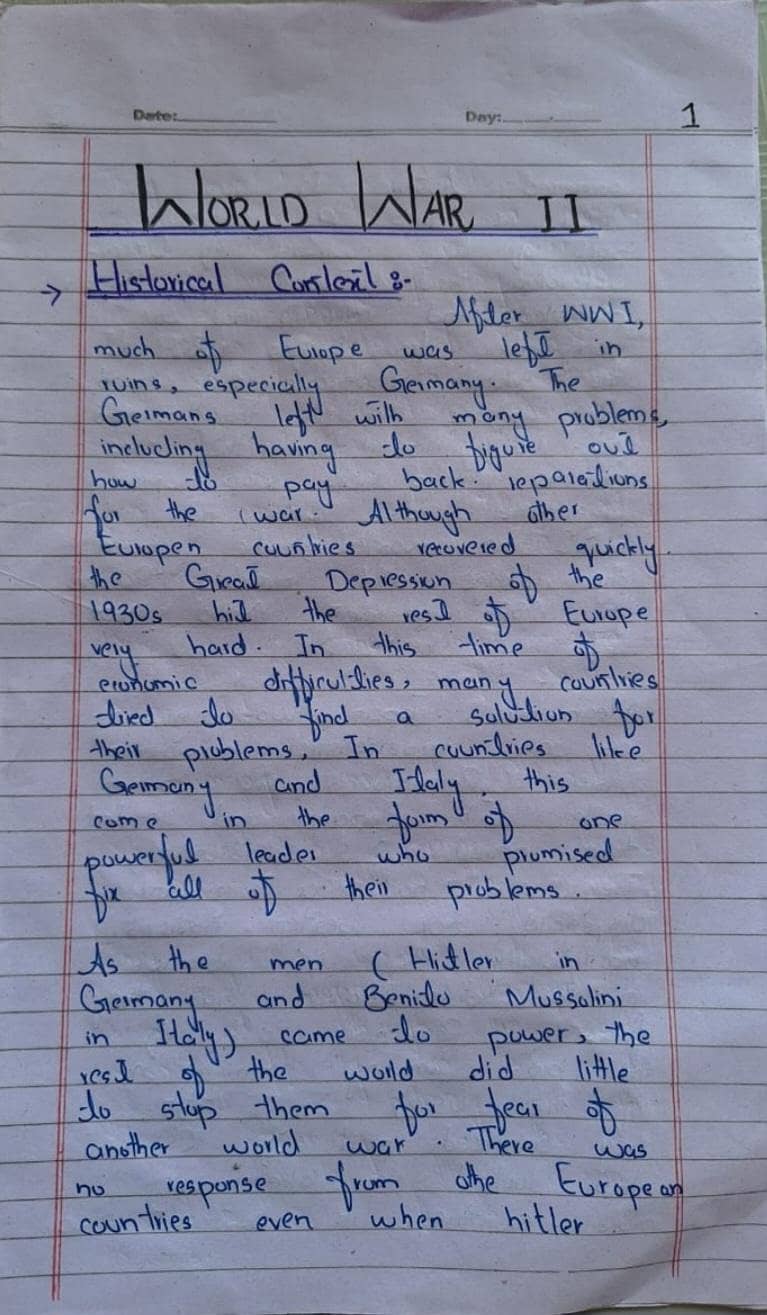 Date: Day: 1
WORLD WAR II
→ Historical Context :-
After WWI,
much of Europe was left in
ruins, especially Germany. The
Germans left with many problems,
including having to figure out
how to pay back reparations
for the war. Although other
Europen countries recovered quickly.
the Great Depression of the
1930s hit the rest of Europe
very hard. In this time of
economic difficulties, many countries
tried to find a solution for
their problems, In countries like
Germany and Italy, this
come in the form of one
powerful leader who promised
fix all of their problems.
As the men ( Hitler in
Germany and Benito Mussolini
in Italy) came to power, the
rest of the world did little
to stop them for fear of
another world war. There was
no response from othe European
countries even when hitler